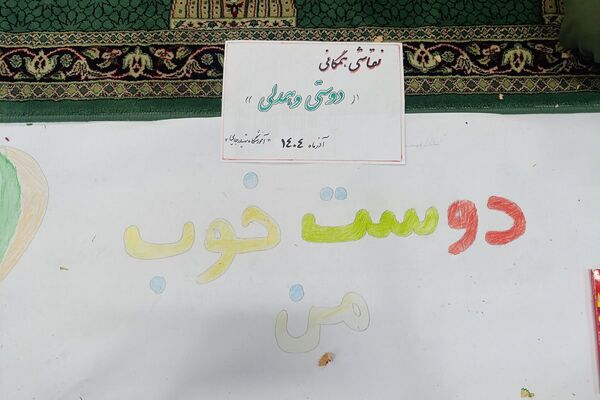 نقاشی همگانی
(( دوستی و همدلی ))
آذرماه ۱۴۰۴
دوست خوب
من